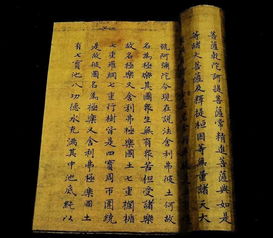 菩薩乾陀訶提菩薩常精進菩薩與如是
等諸大菩薩及釋提桓因等無量諸天大
號阿彌陀今現在說法舍利弗彼土何故
名為極樂其國眾生無有眾苦但受諸樂
故名極樂又舍利弗極樂國土七重欄楯
七重羅網七重行樹皆是四寶周帀圍繞
是故彼國名為極樂又舍利弗極樂國土
有七寶池八功德水充滿其中池底純以